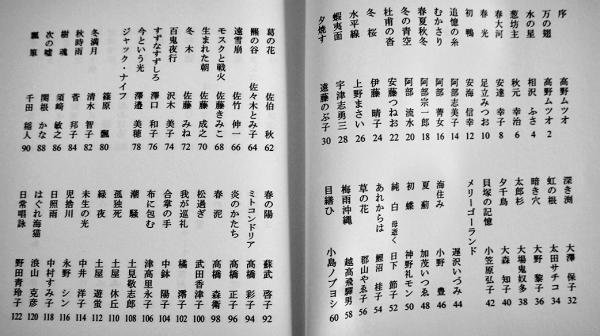 序 高野ムツオ
万の翅 高野ムツオ 2
水の星 相沢 ふさ 4
葱坊主 秋元 幸治 6
春大河 安達 幸子 8
春光 足立みつお 10
初鴨 安海 信幸 12
追憶の糸 阿部志美子 14
むかさり 阿部 菁女 16
春夏秋冬 阿部宗一郎 18
冬の青空 阿部 流水 20
杜甫の沓 安藤つねお 22
冬桜 伊藤 晴子 24
水平線 上野まさい 26
蝦夷面 宇津志勇三 28
夕焼す 遠藤のぶ子 30
深き渕 大澤 保子 32
虹の根 太田サチコ 34
暗き穴 大野 黎子 36
太郎杉 大場鬼奴多 38
夕千鳥 大森 知子 40
貝塚の記憶 小笠原弘子 42
メリーゴーランド 遅沢いづみ 44
海住み 小野 豊 46
夏薊 加茂いつゑ 48
初蝶 神野礼モン 50
純白 母逝く 日下 節子 52
あれからは 鯉沼 桂子 54
草の花 郡山やゑ子 56
梅雨沖縄 越高飛騨男 58
目繕ひ 小島ノブヨシ 60
葛の花 佐伯 秋 62
熊の谷 佐々木とみ子 64
遠雪崩 佐竹 伸一 66
モスクと戦火 佐藤きみこ 68
生まれた朝 佐藤 成之 70
冬木 佐藤 みね 72
百鬼夜行 沢木 美子 74
すずなすずしろ 澤口 和子 76
今という光 澤邉 美穂 78
ジャック・ナイフ 篠原 飄 80
冬満月 清水 智子 82
秋時雨 菅 邦子 84
樹魂 須崎 敏之 86
次の嘘 関根 かな 88
瓢箪 千田 稲人 90
春の陽 蘇武 啓子 92
ミトコンドリア 高橋 彩子 94
炎のかたち 高橋 正子 96
春泥 高橋 森衛 98
松過ぎ 武田香津子 100
我が巡礼 橘 澪子 102
合掌の手 中鉢 陽子 104
布に包む 津高里永子 106
潮騒 土見敬志郎 108
孤独死 土屋 休丘 110
緑夜 土屋 遊蛍 112
未生の光 中井 洋子 114
児捨川 永野 シン 116
日照雨 中村すみ子 118
はぐれ海猫 浪山 克彦 120
日常唱詠 野田青玲子 122